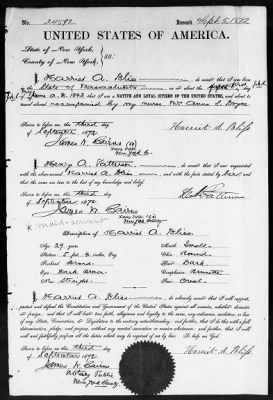 No. 24592. Issued Sept. 5, 1872
UNITED STATES OF AMERICA.
State of New York,
County of New York, } ss:
I, Harriet A. Bliss
State of Massachusetts
A.D. 1843 that I am a NATIVE AND LOYAL CITIZEN OF THE UNITED STATES, and about to travel
abroad accompanied by my nurse Mrs Anna L.
Sworn to before me this third day
of September 1872 Harriet A. Bliss
James W. Cairns
Notary Public
New York Co.
I, Henry A. Patterson do swear that I am acquainted with
the above-named Harriet A. Bliss and with the facts stated by her and that
the same are true to the best of my knowledge and belief.
Sworn to before me this third day
of September 1872
James W. Cairns
Notary Public
New York County
maid-servant
Description of Harriet A. Bliss
Age: 29 years Mouth: Small
Stature: 5 ft. Chin: Round
Forehead: Broad Hair: Dark
Eyes: Complexion: Brunette
Nose: Straight Face: Oval
I, Harriet A. Bliss do solemnly swear that I will support, protect
and defend the Constitution and Government of the United States against all enemies, whether domestic
or foreign; and that I will bear true faith, allegiance and loyalty to the same, any ordinance, resolution, or law
of any State, Convention, or Legislature to the contrary notwithstanding; and further, that I do this with a full
determination, pledge, and purpose, without any mental reservation or evasion whatsoever; and further, that I will
well and faithfully perform all the duties which may be required of me by law. So help me God.
Sworn to before me this third day
of September 1872 Harriet A. Bliss
James W. Cairns
Notary Public
New York County